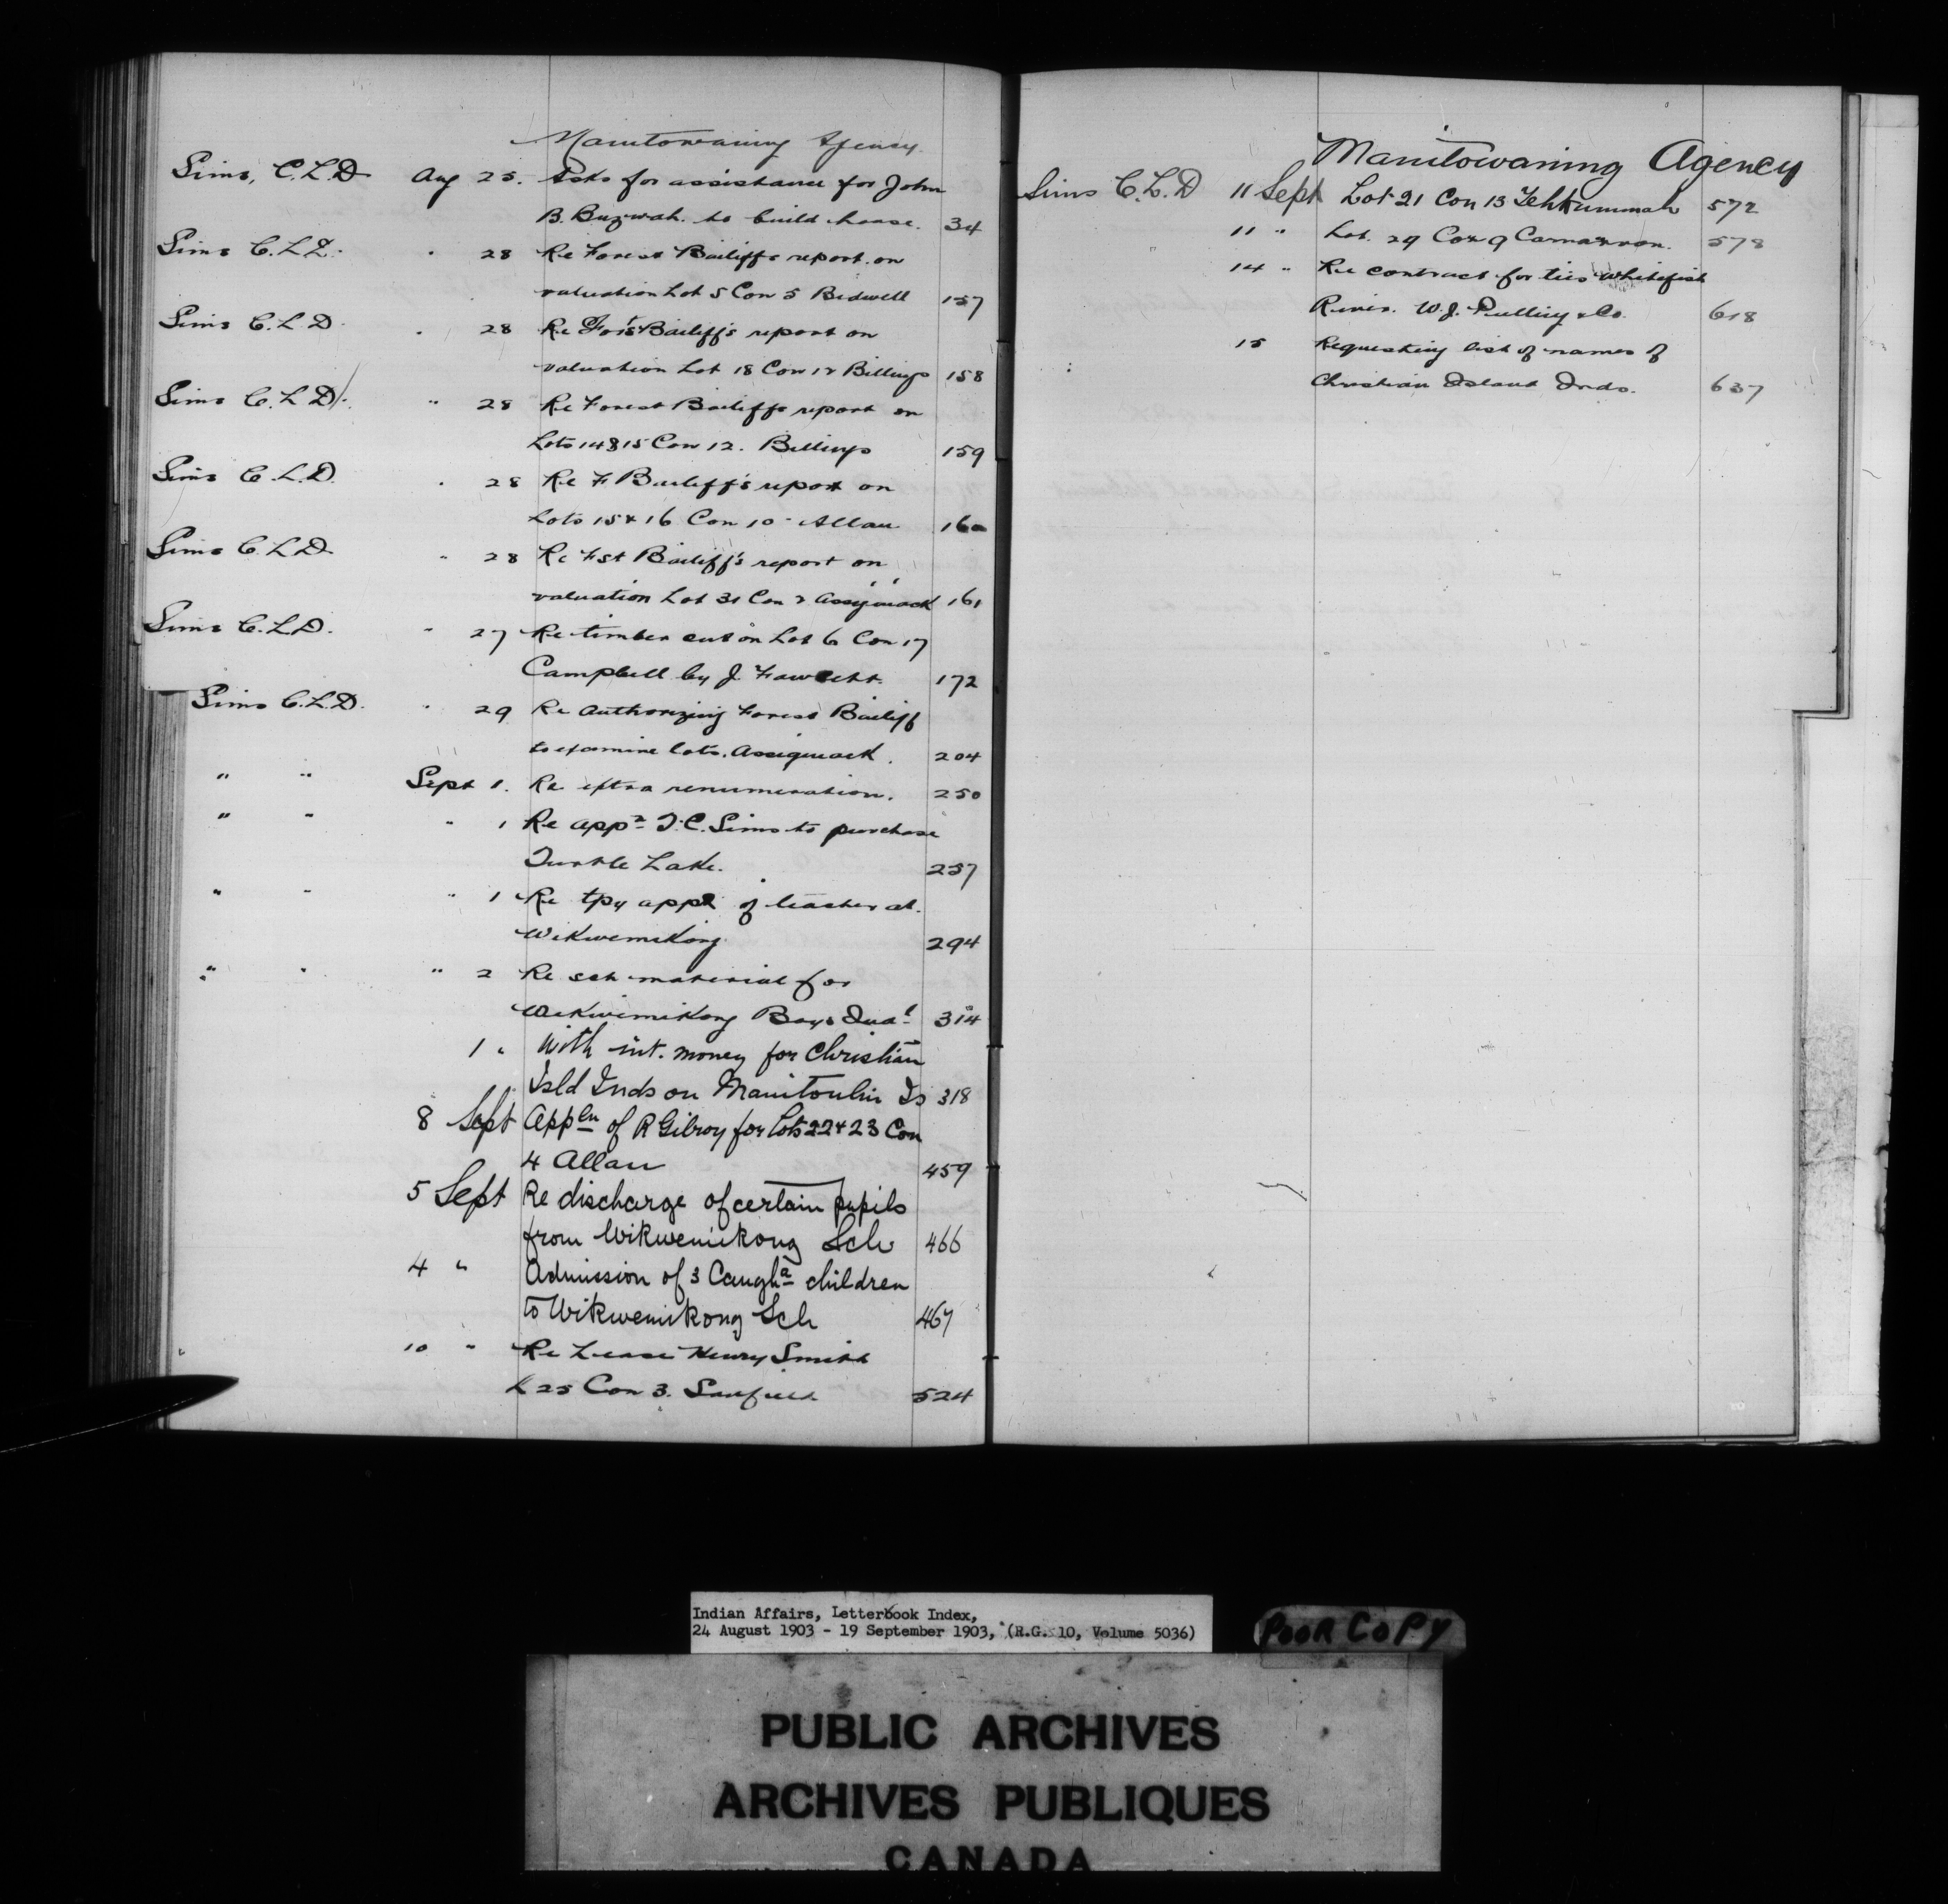 Manitowaning Agency
Sims, C.L.D Aug 25. Asks for assistance for John
B. Buzwah. to build house. 34
Sims C.L.D. " 28 Re Forest Bailiffs report on
valuation Lot 5 Con 5 Bidwell 157
Sims C.L.D. " 28 Re Forst Bailiff's report on
valuation Lot 18 Con 12 Billings 158
Sims C.L.D. " 28 Re Forest Bailiffs report on
Lots 14 & 15 Con 12. Billings 159
Sims C.L.D. " 28 Re F. Bailiff's report on
Lots 15 & 16 Con 10 - Allan 160
Sims C.L.D " 28 Re Fst Bailiff's report on
valuation Lot 31 Con 2 Assiginack 161
Sims C.L.D. " 27 Re timber cut on Lot 6 Con 17
Campbell by J. Fawcett. 172
Sims C.L.D. " 29 Re Authorizing Forest Bailiff
to examine lots. Assiginack. 204
" " Sept 1. Re extra renumeration. 250
" " " 1 Re appn T.C. Sims to purchase
Turtle Lake. 257
" " " 1 Re tpy appt of teacher at.
Wikwemikong 294
" " " 2 Re sch material for
Wikwemikong Boys Indl 314
1 " With int. money for Christian
Isld Inds on Manitoulin Is 318
8 Sept Appln of R Gilroy for Lots 22 & 23 Con
4 Allan 459
5 Sept Re discharge of certain pupils
from Wikwemikong Sch 466
4 " Admission of 3 Caugha children
to Wikwemikong Sch 467
10 " Re Lease Henry Smith
L 25 Con 3. Sanfield 524
Manitowaning Agency
Sims C.L.D 11 Sept Lot 21 Con 13 Tehkummah 572
11 " Lot. 29 Con 9 Carnarvon. 578
14 " Re contract for ties Whitefish
River. W.J. Pulling & Co. 618
15 Requesting list of names of
Christian Island Inds. 637
Indian Affairs, Letterbook Index,
24 August 1903 - 19 September 1903, (R.G. 10, Volume 5036)
POOR COPY
PUBLIC ARCHIVES
ARCHIVES PUBLIQUES
CANADA